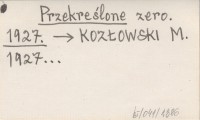 Przekreślone zero.
1927. → KOZŁOWSKI M.
1927...